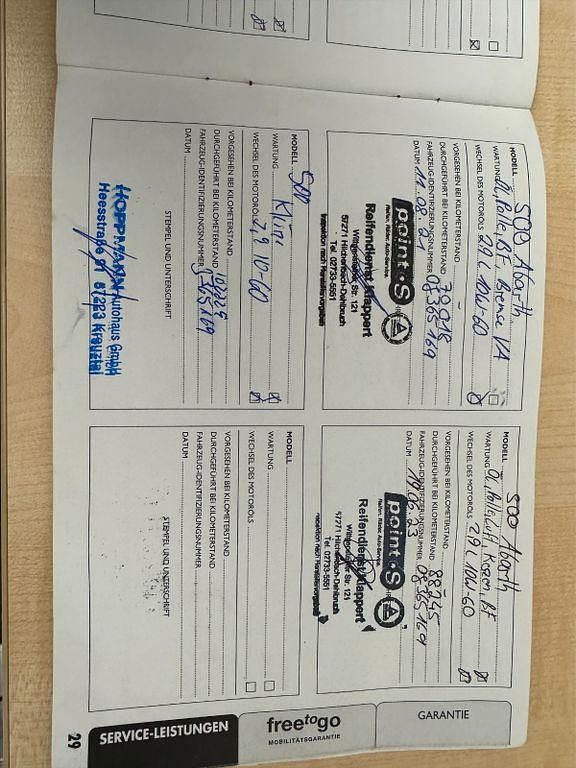 MODELL 500 Abarth
WARTUNG Öl, Pollef, BF, Bremse VA
WECHSEL DES MOTORÖLS 2,9 L 10W-60
VORGESEHEN BEI KILOMETERSTAND
DURCHGEFÜHRT BEI KILOMETERSTAND 70.918
FAHRZEUG-IDENTIFIZIERUNGSNUMMER
DATUM 11.08.21
point S
Reifen. Räder. Auto-Service.
Reifendienst Klappert
Wittgensteiner Str. 121
57271 Hilchenbach-Dahlbruch
Tel. 02733-5551
Inspektion nach Herstellervorgaben
MODELL 500 Abarth
WARTUNG
WECHSEL DES MOTORÖLS 2,9 L 10W-60
VORGESEHEN BEI KILOMETERSTAND
DURCHGEFÜHRT BEI KILOMETERSTAND 88245
FAHRZEUG-IDENTIFIZIERUNGSNUMMER
DATUM
point S
Reifen. Räder. Auto-Service.
Reifendienst Klappert
Wittgensteiner Str. 121
57271 Hilchenbach-Dahlbruch
Tel. 02733-5551
Inspektion nach Herstellervorgaben
MODELL 500
WARTUNG
WECHSEL DES MOTORÖLS 2,9 10-60
VORGESEHEN BEI KILOMETERSTAND
DURCHGEFÜHRT BEI KILOMETERSTAND
FAHRZEUG-IDENTIFIZIERUNGSNUMMER
DATUM
STEMPEL UND UNTERSCHRIFT
HOPPMANN Autohaus GmbH
Heesstraße 57223 Kreuztal
MODELL
WARTUNG
WECHSEL DES MOTORÖLS
VORGESEHEN BEI KILOMETERSTAND
DURCHGEFÜHRT BEI KILOMETERSTAND
FAHRZEUG-IDENTIFIZIERUNGSNUMMER
DATUM
STEMPEL UND UNTERSCHRIFT
GARANTIE
freetogo
MOBILITÄTSGARANTIE
SERVICE-LEISTUNGEN
29